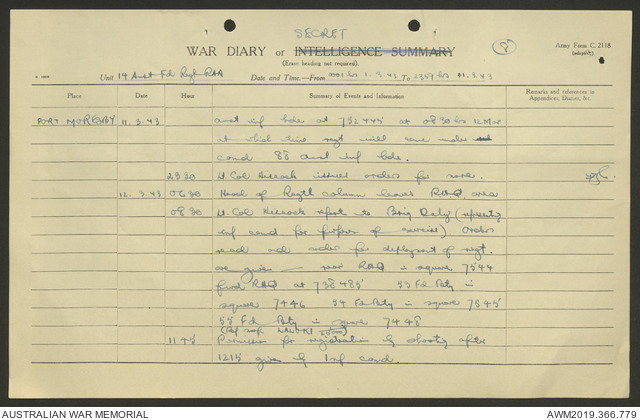 SECRET
WAR DIARY or INTELLIGENCE SUMMARY
8
Army Form C. 2118
(adapted)
(Erase heading not required).
Unit 14 Aust Fd Regt RAA
Date and Time.—From 0001 hrs 1.3.43 To 2359 hrs 31.3.43
Place
Date
Hour
Summary of Events and Information
Remarks and references to
Appendices, Diaries, &c.
PORT MORESBY 11.3.43 aust inf bde at 752445 at 0830 hrs 12 Mar
at which time regt will come under
comd 88 aust inf bde.
2330 Lt Col Hiscock issues orders for move.
12.3.43 0630 Head of Regtl column leaves RHQ area
0830 Lt Col Hiscock report to Brig Daly
inf comd for purpose of exercise) orders
and order for deployment of regt.
are given — rear RHQ in square 7544
fwd RHQ at 738485 53 Fd Bty in
square 7446 54 Fd Bty in square 7545
55 Fd Bty in square 7448
(Ref map LALOKI
1145 Permission for registration by shooting after
1215 given by Inf comd.
AUSTRALIAN WAR MEMORIAL
AWM2019.366.779